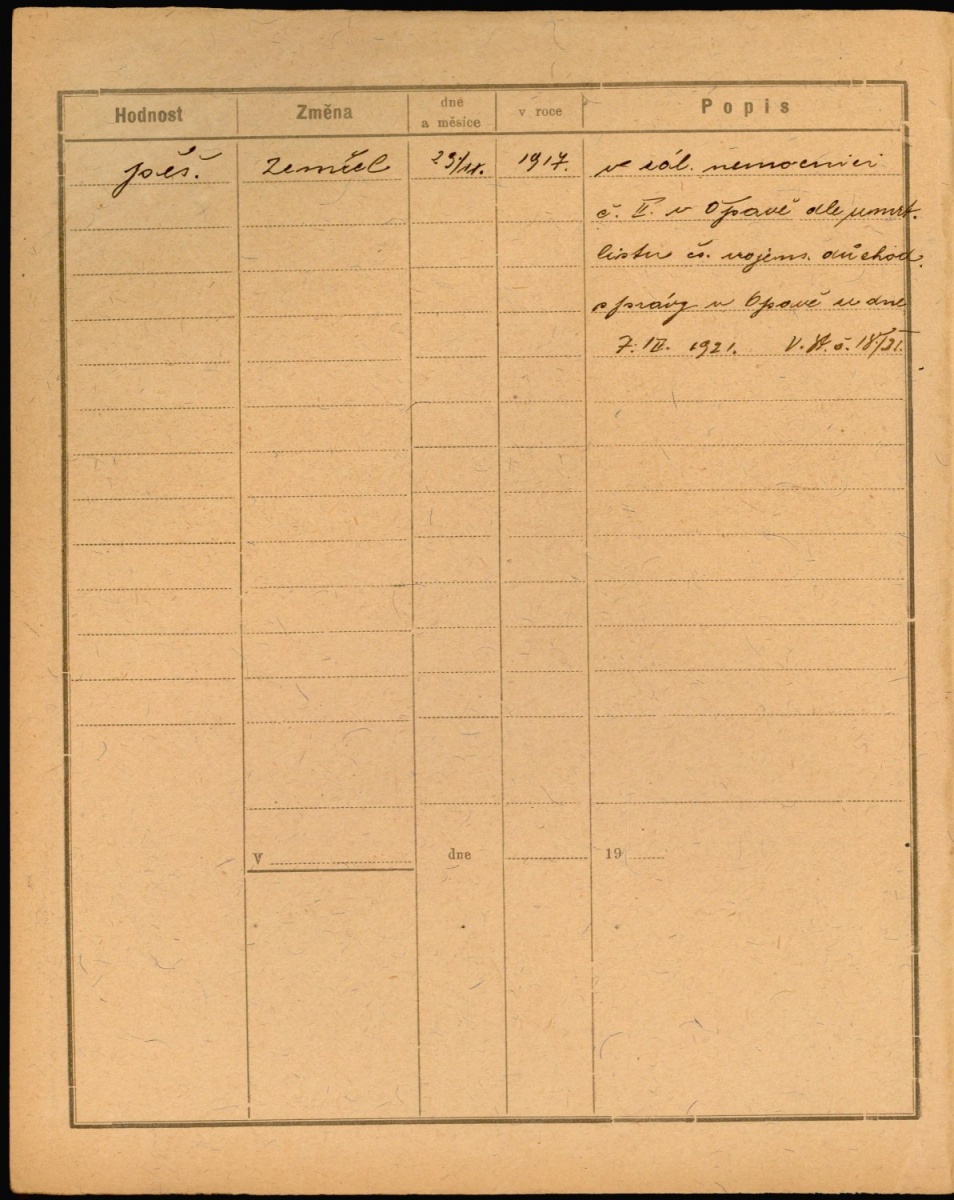 Hodnost Změna dne a měsíce v roce Popis
pěš. zemřel 1917. v zál. nemocnici
č. II. v Opavě dle úmrt.
listu čs. vojens. důchod.
správy v Opavě ze dne
7. III. 1921. 18/21.
V dne 19